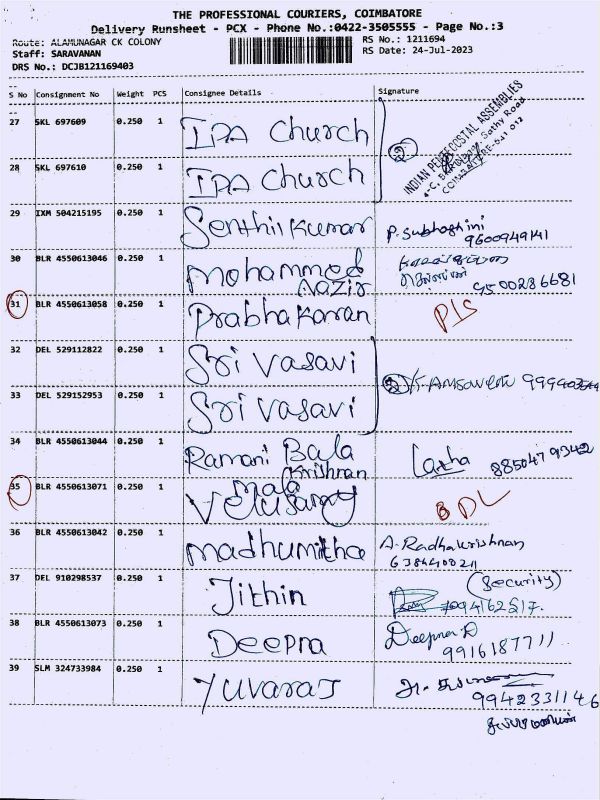 THE PROFESSIONAL COURIERS, COIMBATORE
Delivery Runsheet - PCX - Phone No.:0422-3505555 - Page No.:3
Route: ALAMUNAGAR CK COLONY
Staff: SARAVANAN
DRS No.: DCJB121169403
RS No.: 1211694
RS Date: 24-Jul-2023
S No Consignment No Weight PCS Consignee Details Signature
27 SKL 697609 0.250 1 IPA Church
28 SKL 697610 0.250 1 IPA Church
② INDIAN PENTECOSTAL ASSEMBLIES
Sathy Road
COIMBATORE-641 012
29 IXM 504215195 0.250 1 Senthil Kumar P. Subhashini
9600949141
30 BLR 4550613046 0.250 1 Mohammed
Nazir 9500286681
31 BLR 4550613058 0.250 1 Prabhakaran P/S
32 DEL 529112822 0.250 1 Sri Vasavi
33 DEL 529152953 0.250 1 Sri Vasavi
②
34 BLR 4550613044 0.250 1 Ramani Bala
Krishnan Latha 8850479342
35 BLR 4550613071 0.250 1 mala
Velusamy BDL
36 BLR 4550613042 0.250 1 madhumitha A. Radhakrishnan
37 DEL 910298537 0.250 1 Jithin (Security)
38 BLR 4550613073 0.250 1 Deepna Deepna D
9916187711
39 SLM 324733984 0.250 1 Yuvaraj
9942331146